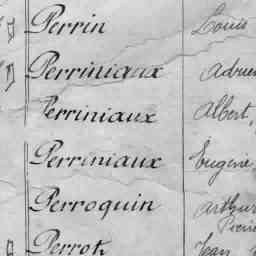 Perrin Louis
Perriniaux Adrien
Perriniaux Albert,
Perriniaux Eugène,
Perroquin Arthur
Pierre
Perrot Jean